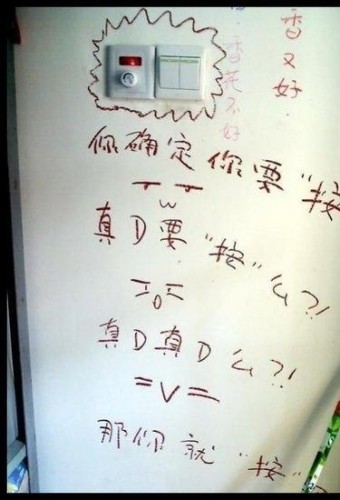 香又好
你确定你要"按
真D要"按"么?!
真D真D么?!
那你就"按"